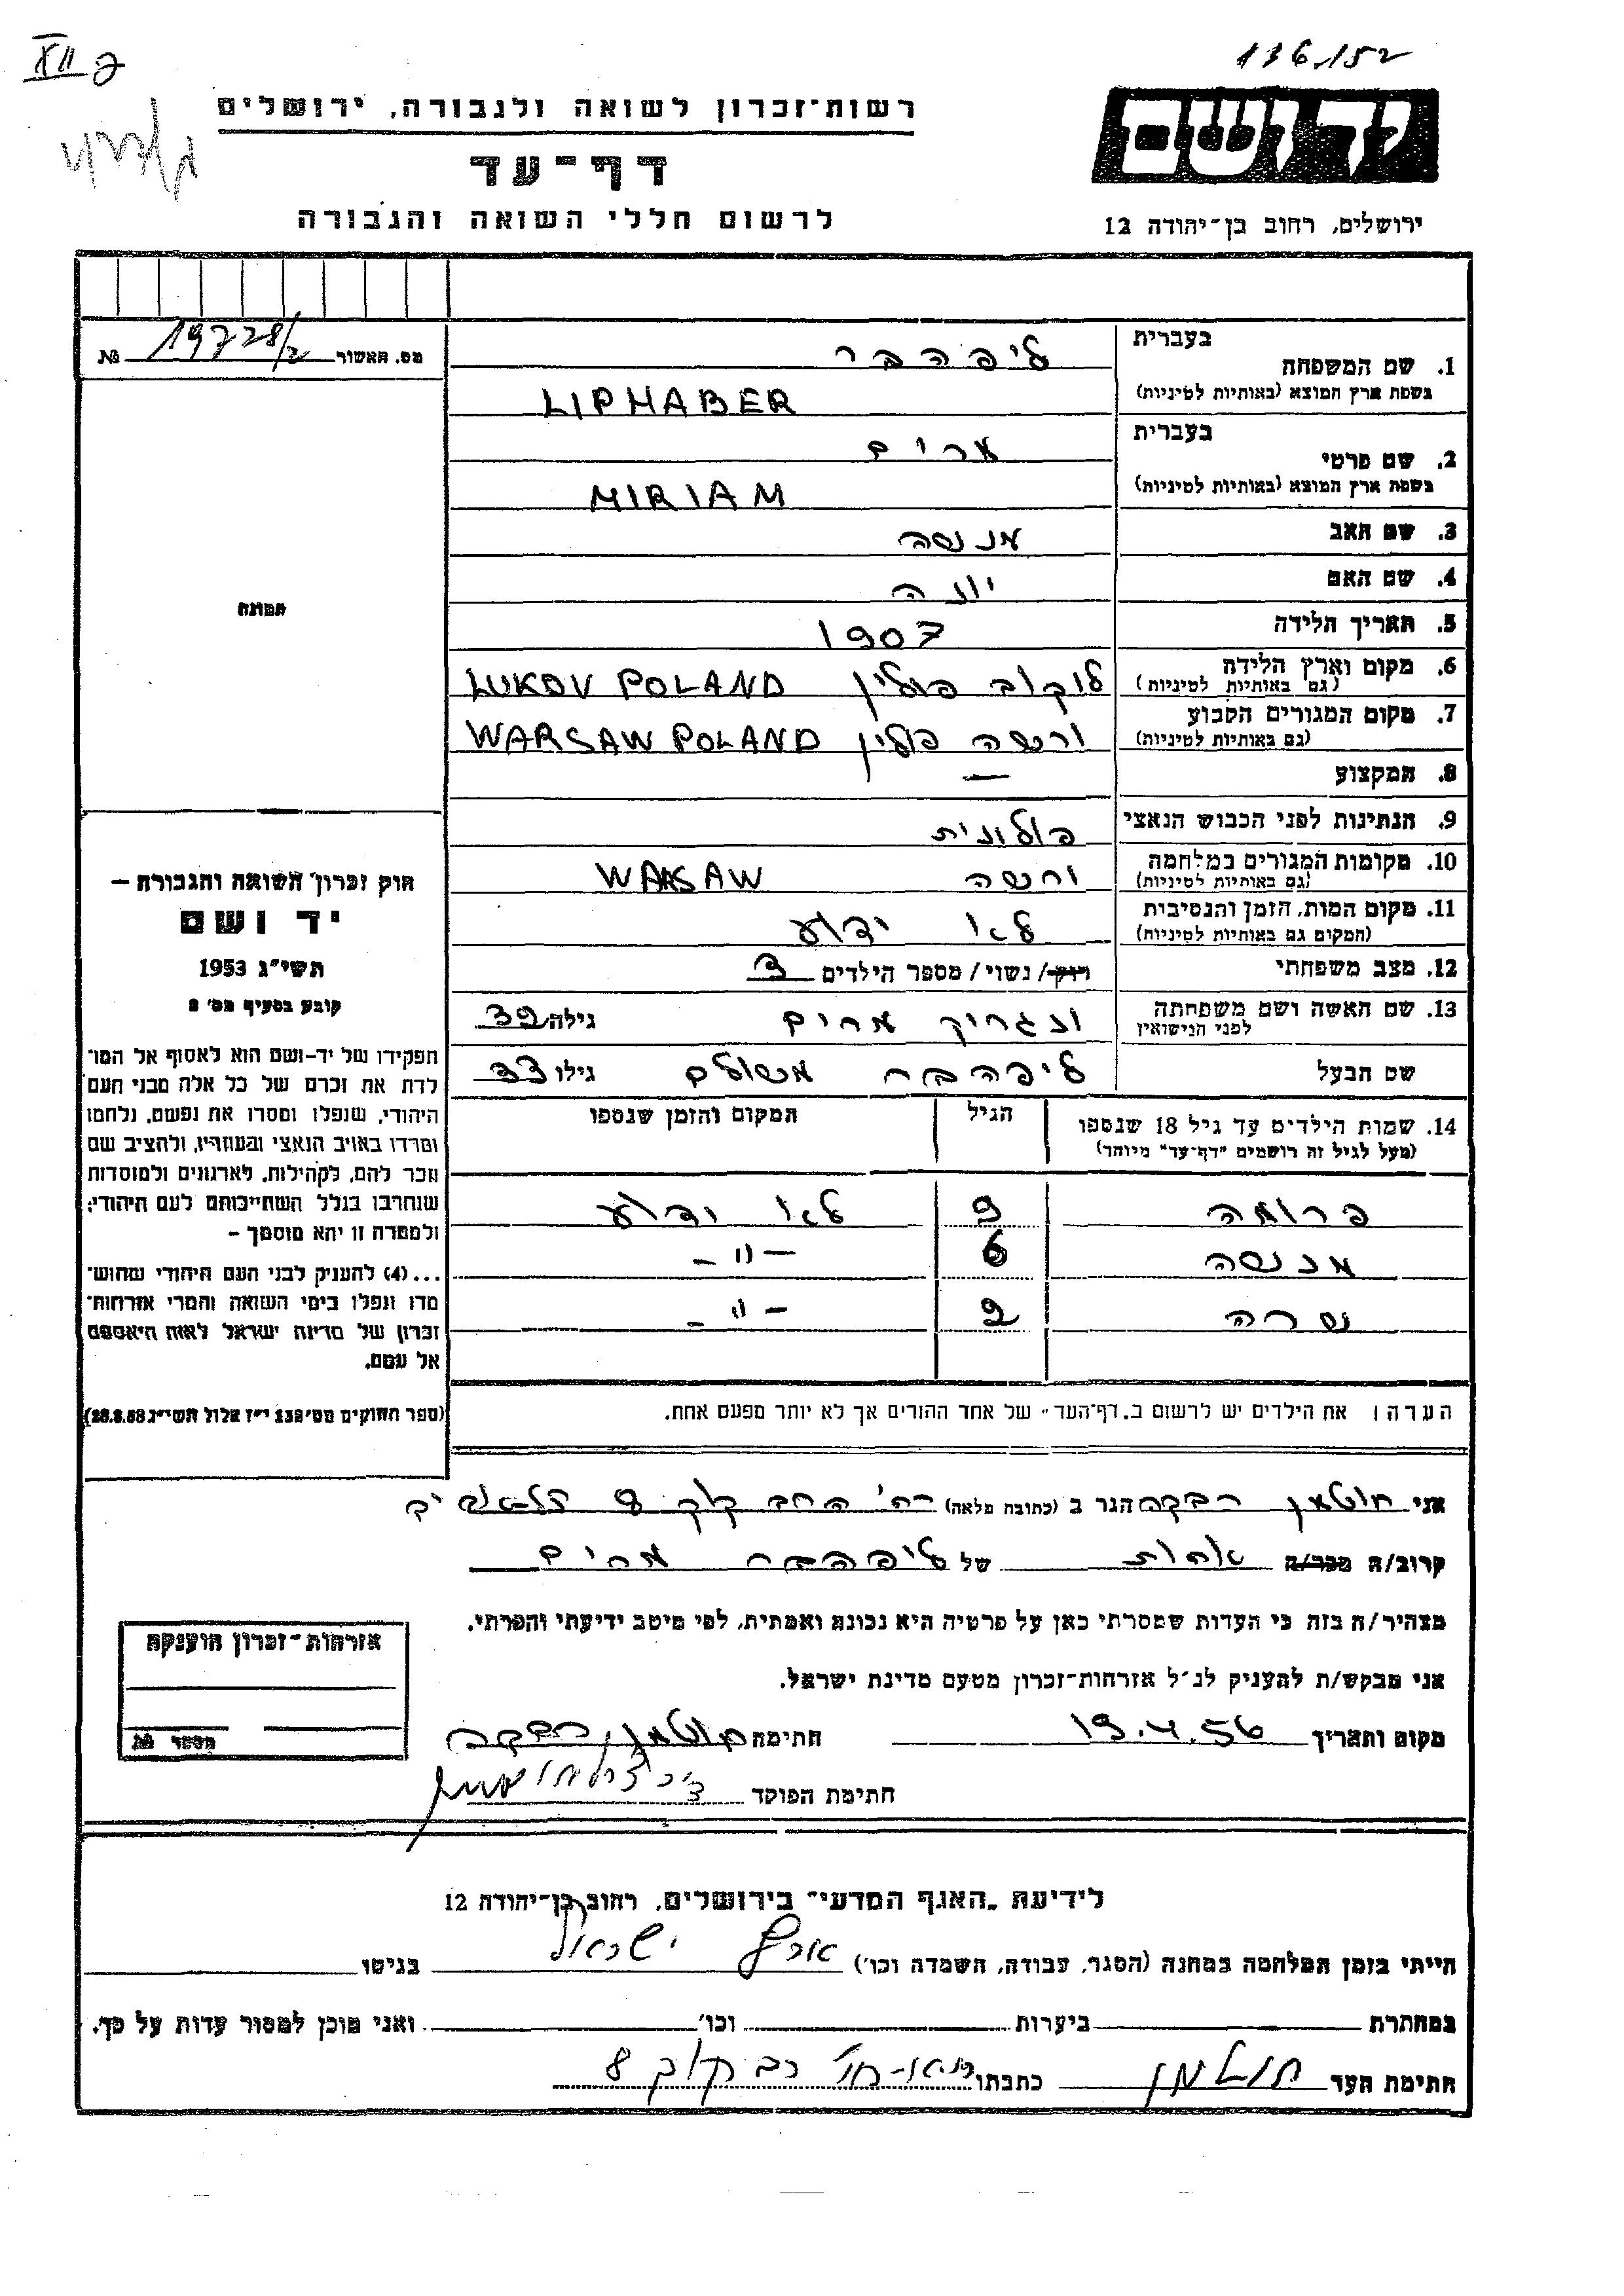 XII ק
136.152
רשות־זכרון לשואה ולגבורה, ירושלים
יד ושם
דף־עד
לרשום חללי השואה והגבורה
ירושלים, רחוב בן־יהודה 12
מס. האשור 19728/2 №
תמונה
חוק זכרון השואה והגבורה –
יד ושם
תשי״ג 1953
קובע בסעיף מס׳ 2
תפקידו של יד-ושם הוא לאסוף אל המו־
לדת את זכרם של כל אלה מבני העם
היהודי, שנפלו ומסרו את נפשם, נלחמו
ומרדו באויב הנאצי ובעוזריו, ולהציב שם
וזכר להם, לקהילות, לארגונים ולמוסדות
שנחרבו בגלל השתייכותם לעם היהודי;
ולמטרה זו יהא מוסמך –
...(4) להעניק לבני העם היהודי שהוש־
מדו ונפלו בימי השואה והמרי אזרחות־
זכרון של מדינת ישראל לאות היאספם
אל עמם.
(ספר החוקים מס׳ 132 י״ז אלול תשי״ג 28.8.53)
1. שם המשפחה בעברית ליפהבר
בשפת ארץ המוצא (באותיות לטיניות) LIPHABER
2. שם פרטי בעברית מרים
בשפת ארץ המוצא (באותיות לטיניות) MIRIAM
3. שם האב מנסה
4. שם האם יונה
5. תאריך הלידה 1907
6. מקום וארץ הלידה (גם באותיות לטיניות) לוקוב פולין LUKOV POLAND
7. מקום המגורים הקבוע (גם באותיות לטיניות) ורשה פולין WARSAW POLAND
8. המקצוע —
9. הנתינות לפני הכבוש הנאצי פולונית
10. מקומות המגורים במלחמה (גם באותיות לטיניות) ורשה WARSAW
11. מקום המות, הזמן והנסיבות (המקום גם באותיות לטיניות) לא ידוע
12. מצב משפחתי רווק/ נשוי/ מספר הילדים 3
13. שם האשה ושם משפחתה לפני הנישואין מרים גילה 32
שם הבעל ליפהבר משולם גילו 33
14. שמות הילדים עד גיל 18 שנספו הגיל המקום והזמן שנספו
(מעל לגיל זה רושמים "דף־עד" מיוחד)
פרומה 9 לא ידוע
מנסה 6 – 〃 –
שרה 2 – 〃 –
הערה: את הילדים יש לרשום ב„דף־העד״ של אחד ההורים אך לא יותר מפעם אחת.
אני חוטמן רבקה הגר ב (כתובת מלאה) רח׳ הרב קוק 8 תל־אביב
קרוב/ה מכר/ה אחות של ליפהבר מרים
מצהיר/ה בזה כי העדות שמסרתי כאן על פרטיה היא נכונה ואמתית, לפי מיטב ידיעתי והכרתי.
אני מבקש/ת להעניק לנ״ל אזרחות־זכרון מטעם מדינת ישראל.
מקום ותאריך 19.4.56 חתימה חוטמן רבקה
חתימת הפוקד
אזרחות־זכרון הוענקה
מספר №
לידיעת „האגף המדעי״ בירושלים, רחוב בן־יהודה 12
הייתי בזמן המלחמה במחנה (הסגר, עבודה, השמדה וכו׳) ארץ ישראל בגיטו
במחתרת ביערות וכו׳ ואני מוכן למסור עדות על כך.
חתימת העד חוטמן כתבתו